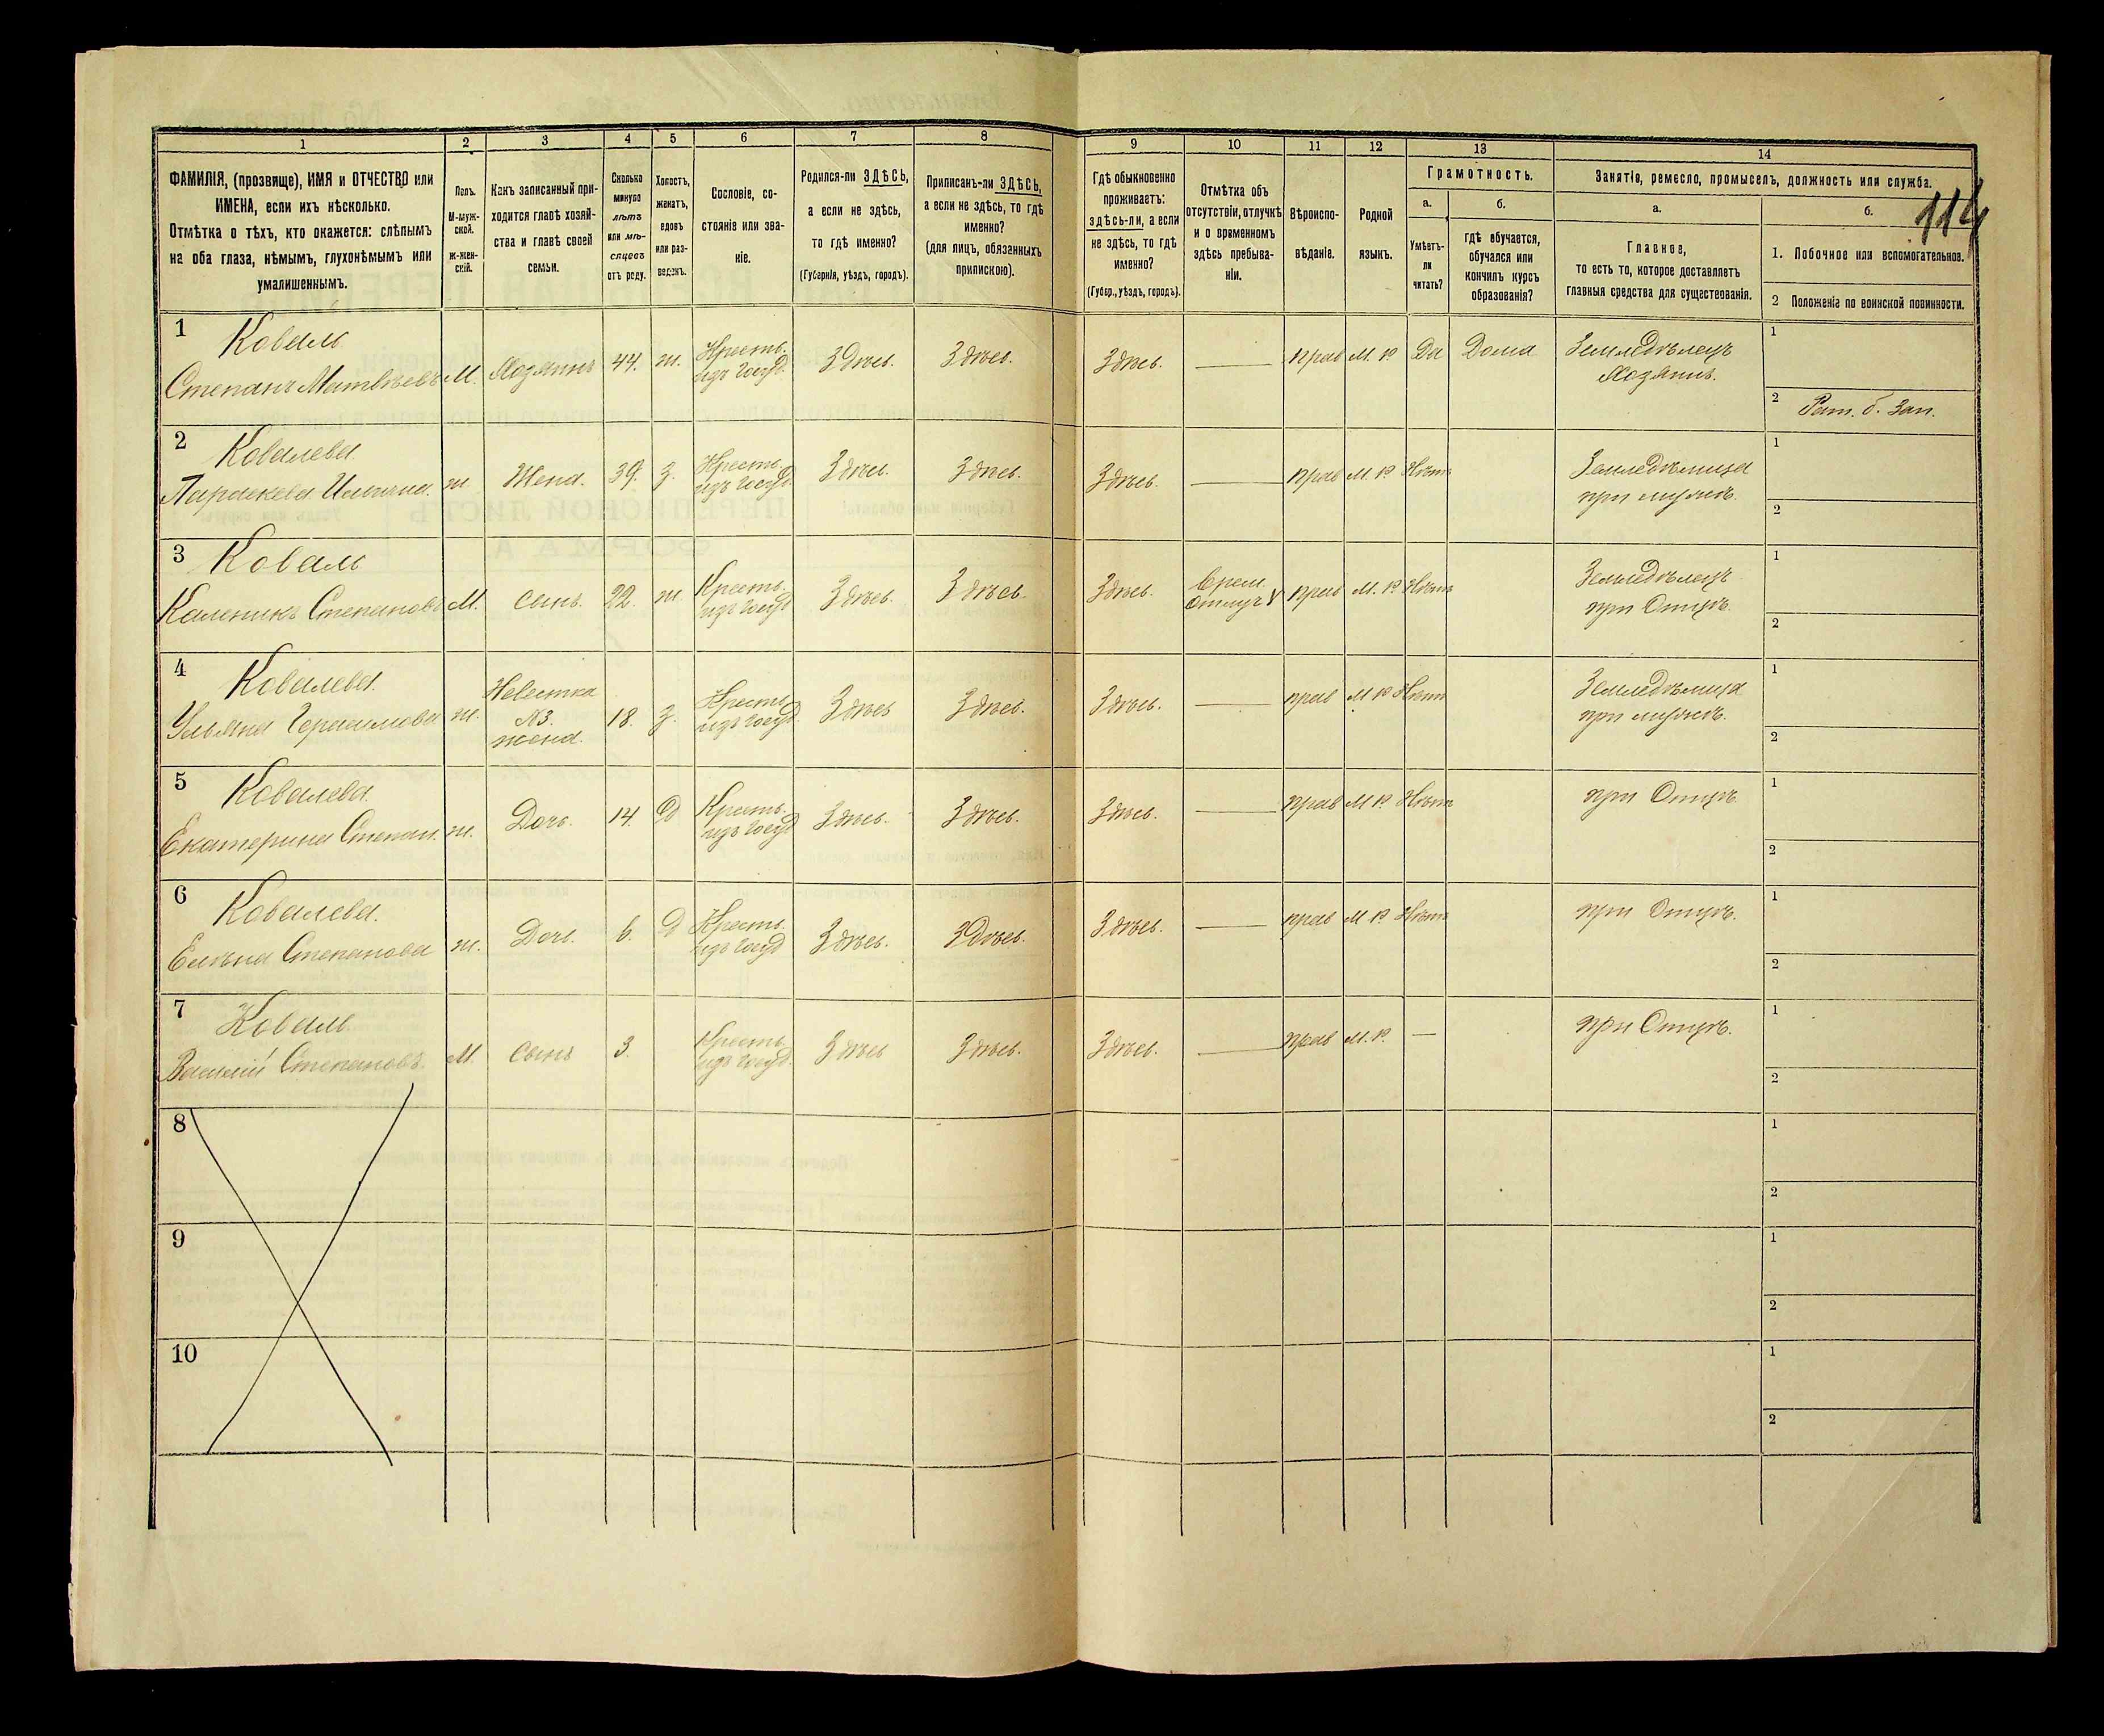 114
1 2 3 4 5 6 7 8 9 10 11 12 13 14
ФАМИЛІЯ, (прозвище), ИМЯ и ОТЧЕСТВО или
ИМЕНА, если ихъ нѣсколько.
Отмѣтка о тѣхъ, кто окажется: слѣпымъ
на оба глаза, нѣмымъ, глухонѣмымъ или
умалишеннымъ.
Полъ.
М-муж-
ской.
ж-жен-
скій.
Какъ записанный при-
ходится главѣ хозяй-
ства и главѣ своей
семьи.
Сколько
минуло
лѣтъ
или мѣ-
сяцевъ
отъ роду.
Холостъ,
женатъ,
вдовъ
или раз-
веденъ.
Сословіе, со-
стояніе или зва-
ніе.
Родился-ли ЗДѢСЬ,
а если не здѣсь,
то гдѣ именно?
(Губернія, уѣздъ, городъ).
Приписанъ-ли ЗДѢСЬ,
а если не здѣсь, то гдѣ
именно?
(для лицъ, обязанныхъ
припискою).
Гдѣ обыкновенно
проживаетъ:
здѣсь-ли, а если
не здѣсь, то гдѣ
именно?
(Губер., уѣздъ, городъ).
Отмѣтка объ
отсутствіи, отлучкѣ
и о временномъ
здѣсь пребыва-
ніи.
Вѣроиспо-
вѣданіе.
Родной
языкъ.
Грамотность.
а.
Умѣетъ-
ли
читать?
б.
гдѣ обучается,
обучался или
кончилъ курсъ
образованія?
Занятіе, ремесло, промыселъ, должность или служба.
а.
Главное,
то есть то, которое доставляетъ
главныя средства для существованія.
б.
1. Побочное или вспомогательное.
2 Положеніе по воинской повинности.
1 Коваль
Степанъ Матвѣевъ М. Хозяинъ 44. ж. Кресть. изъ госуд. Здѣсь. Здѣсь. Здѣсь. — прав М. Р. Да Дома Земледѣлецъ
Хозяинъ.
1
2 Рат. б. Зап.
2 Ковалева
Параскева Ильина. ж Жена. 39. з. Кресть. изъ госуд. Здѣсь. Здѣсь. Здѣсь. — прав М. Р Нѣтъ Земледѣлица
при мужѣ.
1
2
3 Коваль
Каленикъ Степановъ М. Сынъ. 22. ж Кресть. изъ госуд Здѣсь. Здѣсь. Здѣсь. Врем. Отлуч прав М. Р Нѣтъ Земледѣлецъ
при Отцѣ.
1
2
4 Ковалева.
Ульяна Герасимова ж. Невестка №3. жена. 18. з. Кресть. изъ госуд. Здѣсь Здѣсь. Здѣсь. — прав М Р Нѣтъ Земледѣлица
при мужѣ.
1
2
5 Ковалева.
Екатерина Степан. ж. Дочь. 14. Д Кресть. изъ госуд Здѣсь. Здѣсь. Здѣсь. — прав М Р. Нѣтъ при Отцѣ
1
2
6 Ковалева.
Елѣна Степанова ж. Дочь. 6. Д Кресть. изъ госуд Здѣсь. Здѣсь. Здѣсь. — прав М Р. Нѣтъ при Отцѣ.
1
2
7 Коваль
Василій Степановъ. М. Сынъ 3. Кресть. изъ госуд. Здѣсь Здѣсь. Здѣсь. — прав М. Р. — при Отцѣ.
1
2
8
1
2
9
1
2
10
1
2